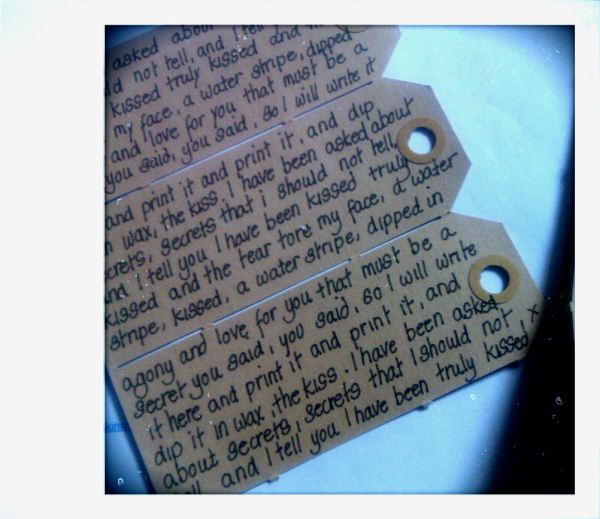 asked about
ld not tell, and I tell
kissed truly kissed and
my face, a water stripe, dipped
and love for you that must be a
you said, you said, so I will write it
and print it and print it, and dip
in wax, the kiss. I have been asked about
crets, secrets that i should not tell,
and I tell you I have been kissed truly
kissed and the tear tore my face, a water
stripe, kissed, a water stripe, dipped in
agony and love, for you that must be a
secret you said, you said, so I will write
it here and print it and print it, and
dip it in wax, the kiss. I have been asked
about secrets, secrets that I should not x
tell and I tell you I have been truly kissed